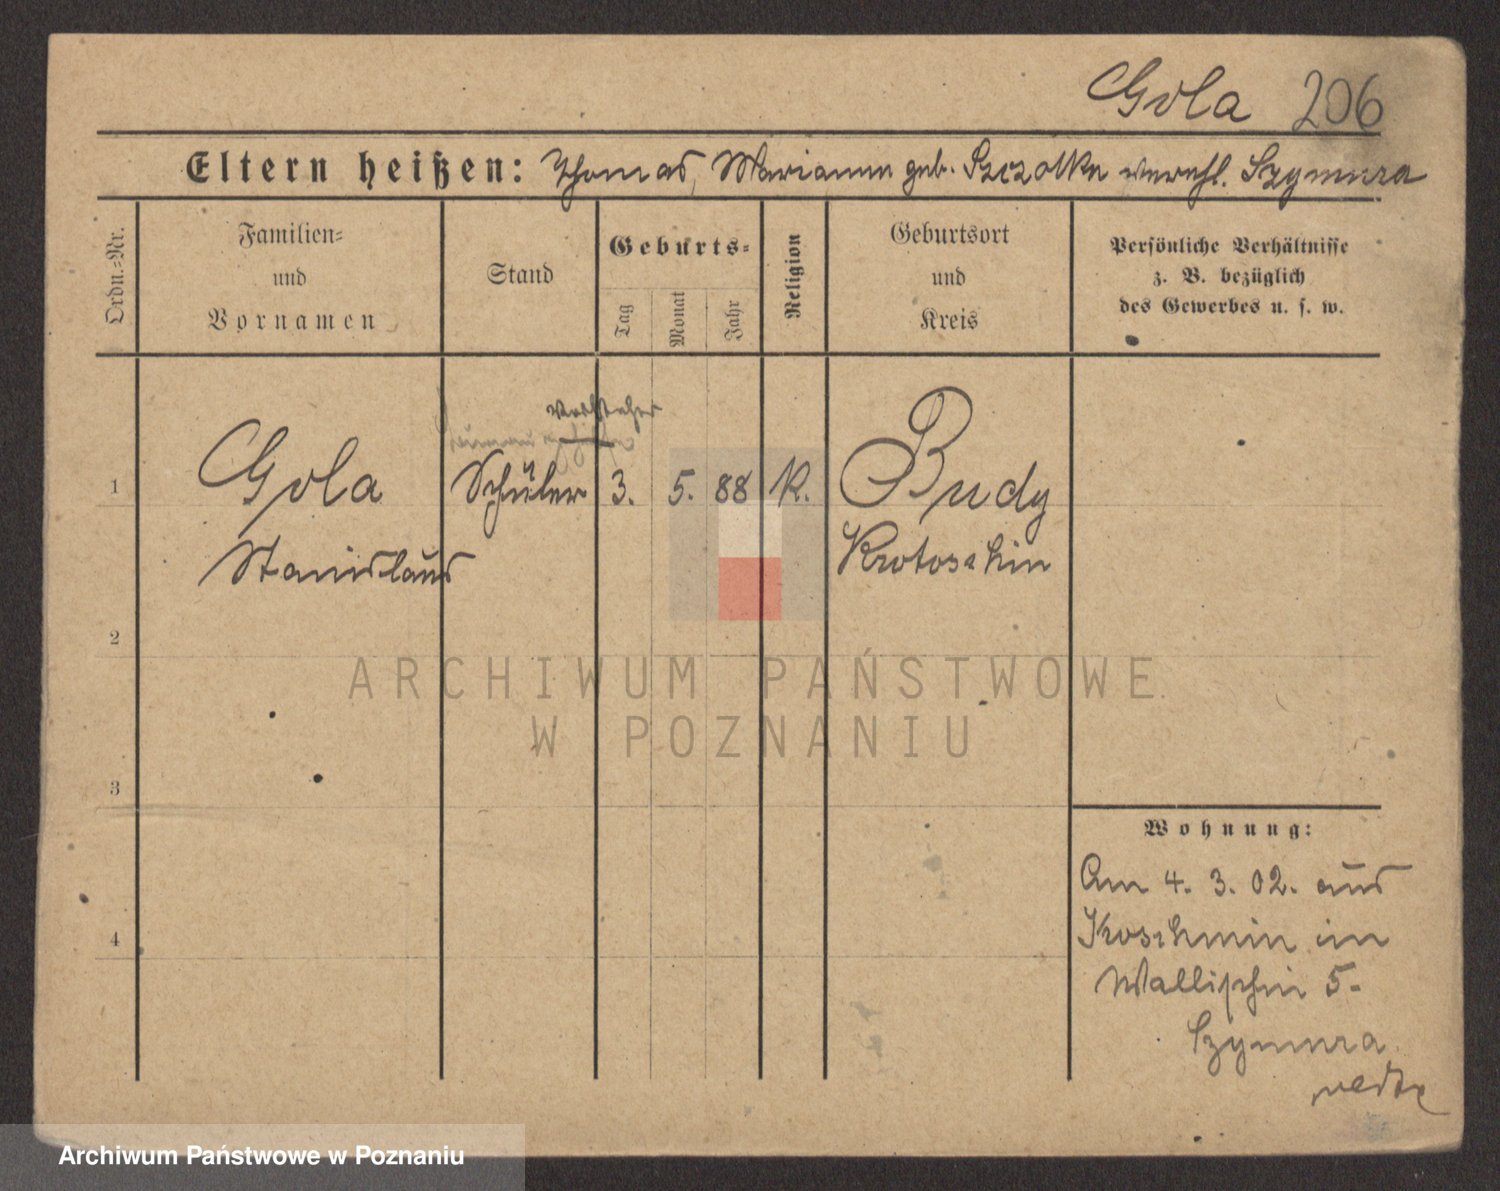 Gola 206
Eltern heißen: Thomas, Marianna geb. Szczotka verehl. Szymura
Ordn.-Nr.
Familien-
und
Vornamen
Stand
Geburts-
Tag
Monat
Jahr
Religion
Geburtsort
und
Kreis
Persönliche Verhältnisse
z. B. bezüglich
des Gewerbes u. s. w.
1
Gola
Schüler
3.
5.
88
K.
Budy
Stanislaus
Krotoschin
2
ARCHIWUM PAŃSTWOWE
W POZNANIU
3
Wohnung:
Am 4. 3. 02. aus
Koschmin in
4
Wallischei 5.
Szymura
Archiwum Państwowe w Poznaniu